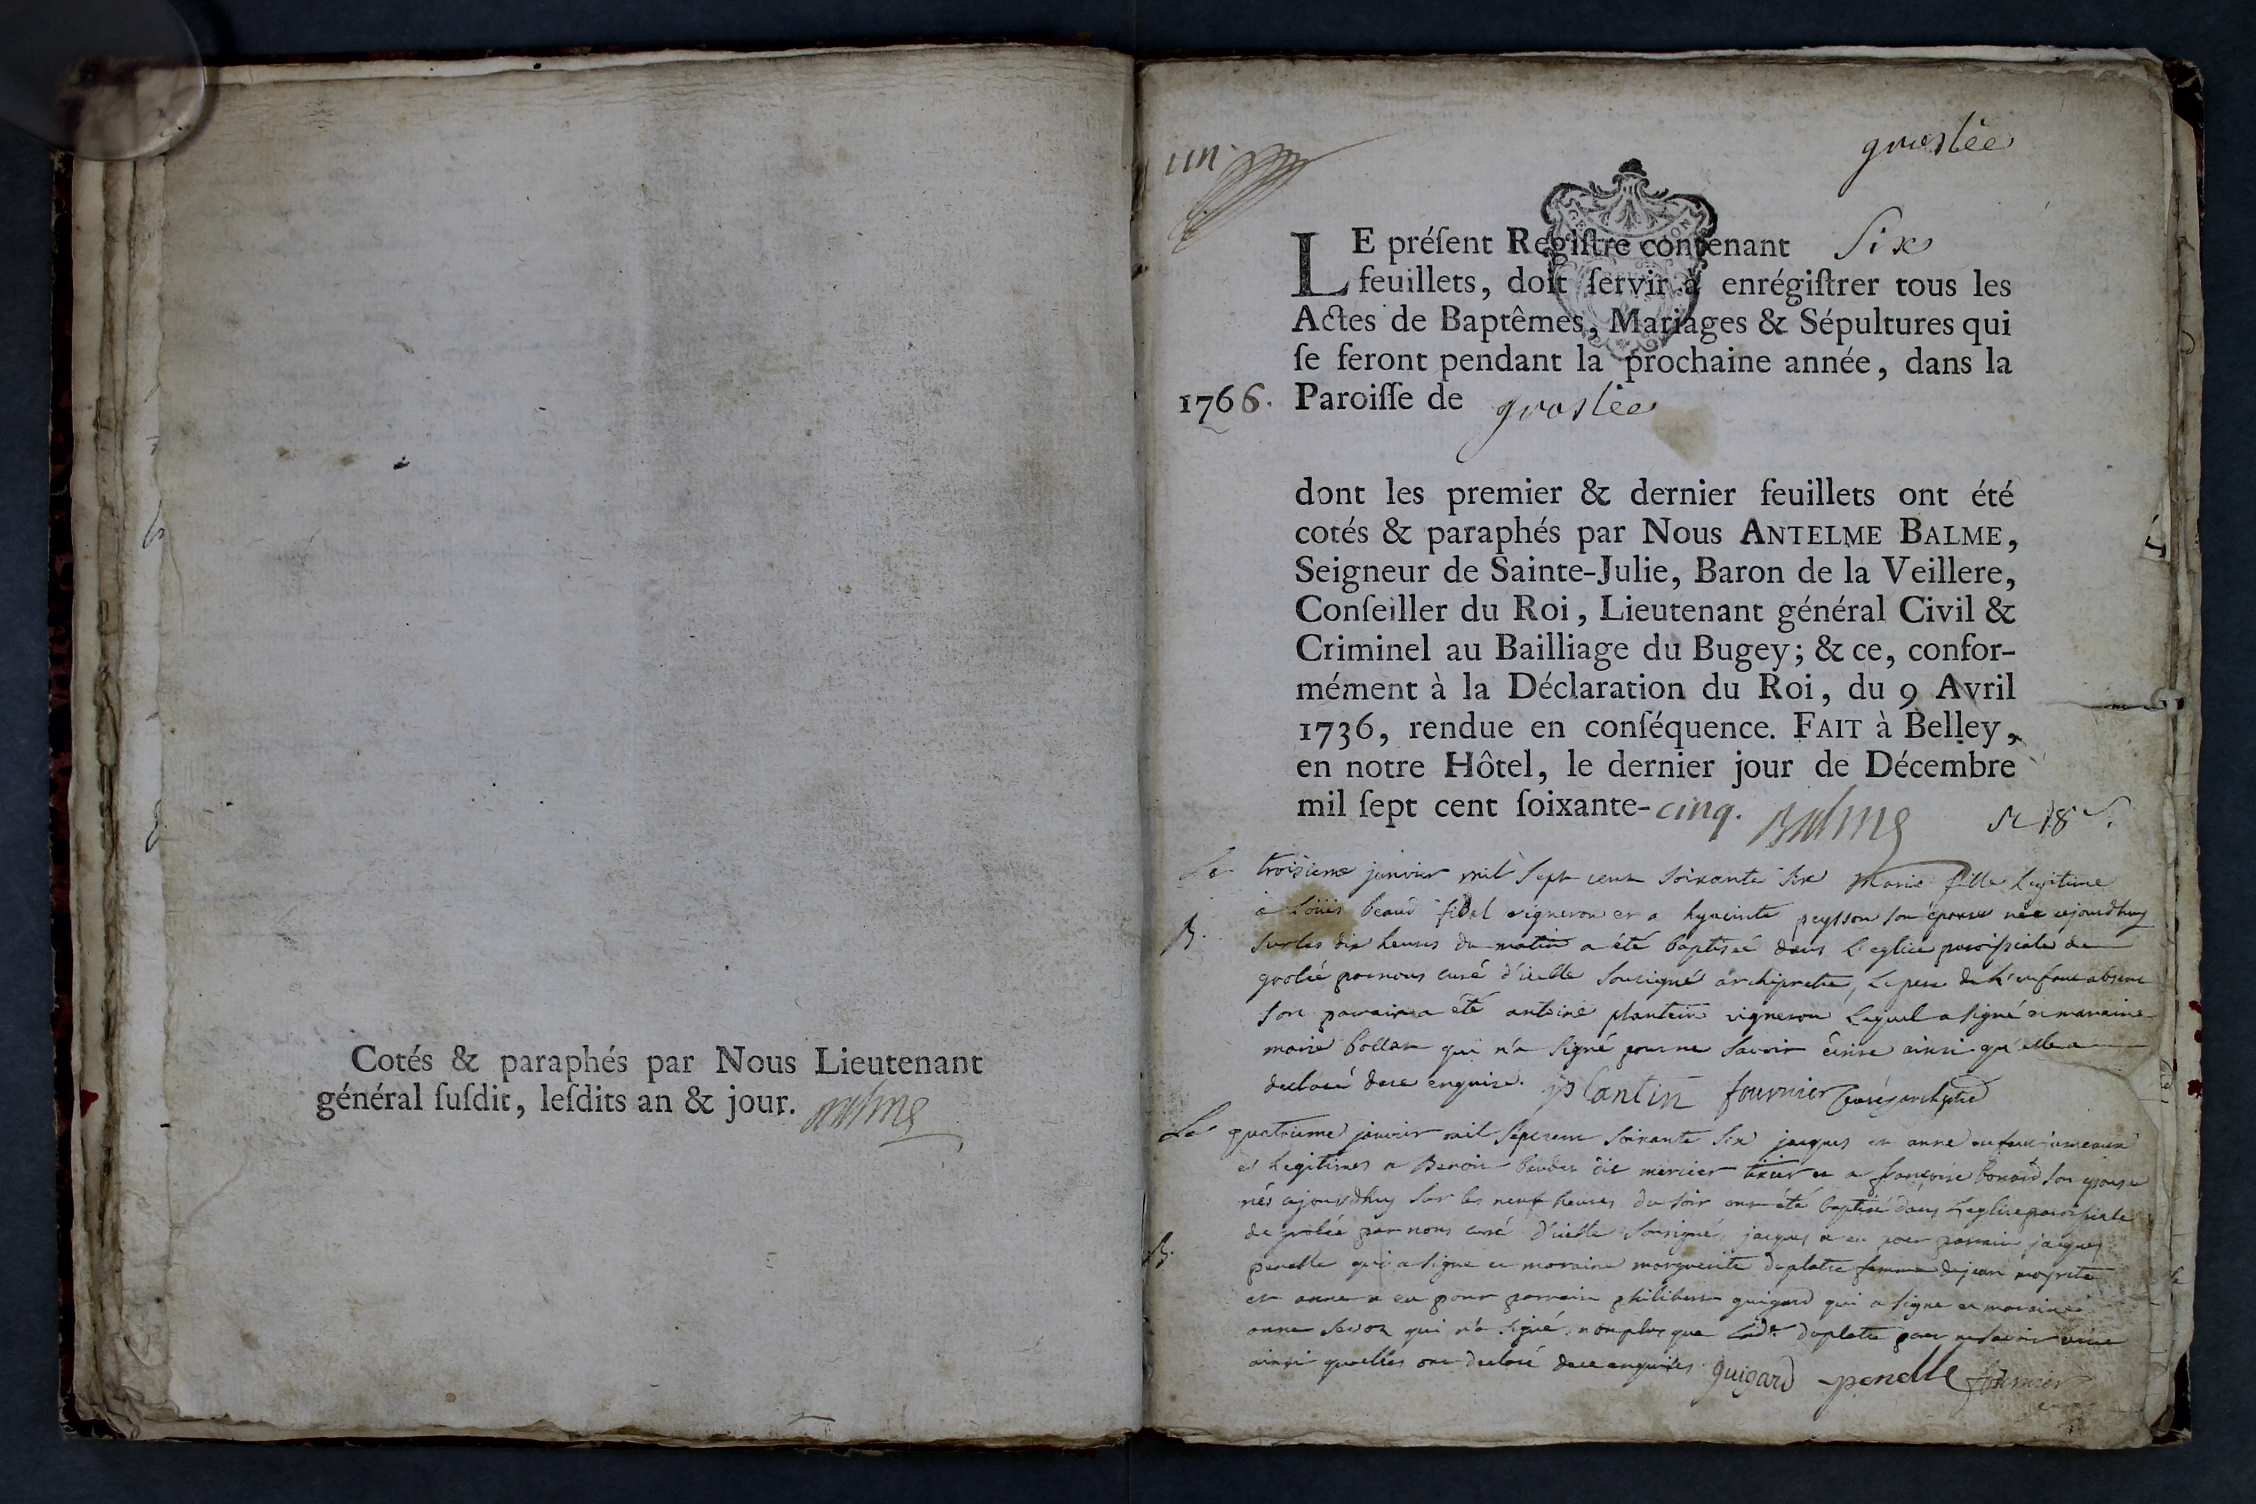 Cotés & paraphés par Nous Lieutenant
général ſuſdit, leſdits an & jour. Balme
un.
groslée
LE préſent Regiſtre contenant Six
feuillets, doit ſervir à enrégiſtrer tous les
Actes de Baptêmes, Mariages & Sépultures qui
ſe feront pendant la prochaine année, dans la
1766. Paroiſſe de groslée
dont les premier & dernier feuillets ont été
cotés & paraphés par Nous ANTELME BALME,
Seigneur de Sainte-Julie, Baron de la Veillere,
Conſeiller du Roi, Lieutenant général Civil &
Criminel au Bailliage du Bugey; & ce, confor-
mément à la Déclaration du Roi, du 9 Avril
1736, rendue en conſéquence. FAIT à Belley,
en notre Hôtel, le dernier jour de Décembre
mil ſept cent ſoixante-cinq. Balme
Le troisieme janvier mil sept cent soixante six Marie fille legitime
a Loüis beaud fidel vigneron et a hyacinte peysson son épouse née cejourdhuy
B. sur les dix heures du matin a été baptisée dans l'eglise paroissiale de
grolée par nous curé d'icelle sousigné archipretre, le pere de l'enfant absent
son parrain a été antoine plantein vigneron lequel a signé et marraine
marie qui n'a signé pour ne savoir écrire ainsi qu'elle a
declaré de ce enquise. plantin fournier curé archiptre
Le quatrieme janvier mil sept cent soixante six jacques et anne enfans jumeaux
et legitimes a Benoit dit mercier tixier et a françoise bonard son epouse
nés cejourdhuy sur les neuf heures du soir ont été baptisé dans l'eglise paroissiale
de grolée par nous curé d'icelle sousigné, jacques a eu pour parrain jacques
B. penelle qui a signé et marraine marguerite duplatre femme de jean
et anne a eu pour parrain philibert guigard qui a signé et marraine
anne qui n'a signé non plus que lade. duplatre pour ne savoir ecrire
ainsi quelles ont declaré de ce enquises guigard penelle fournier